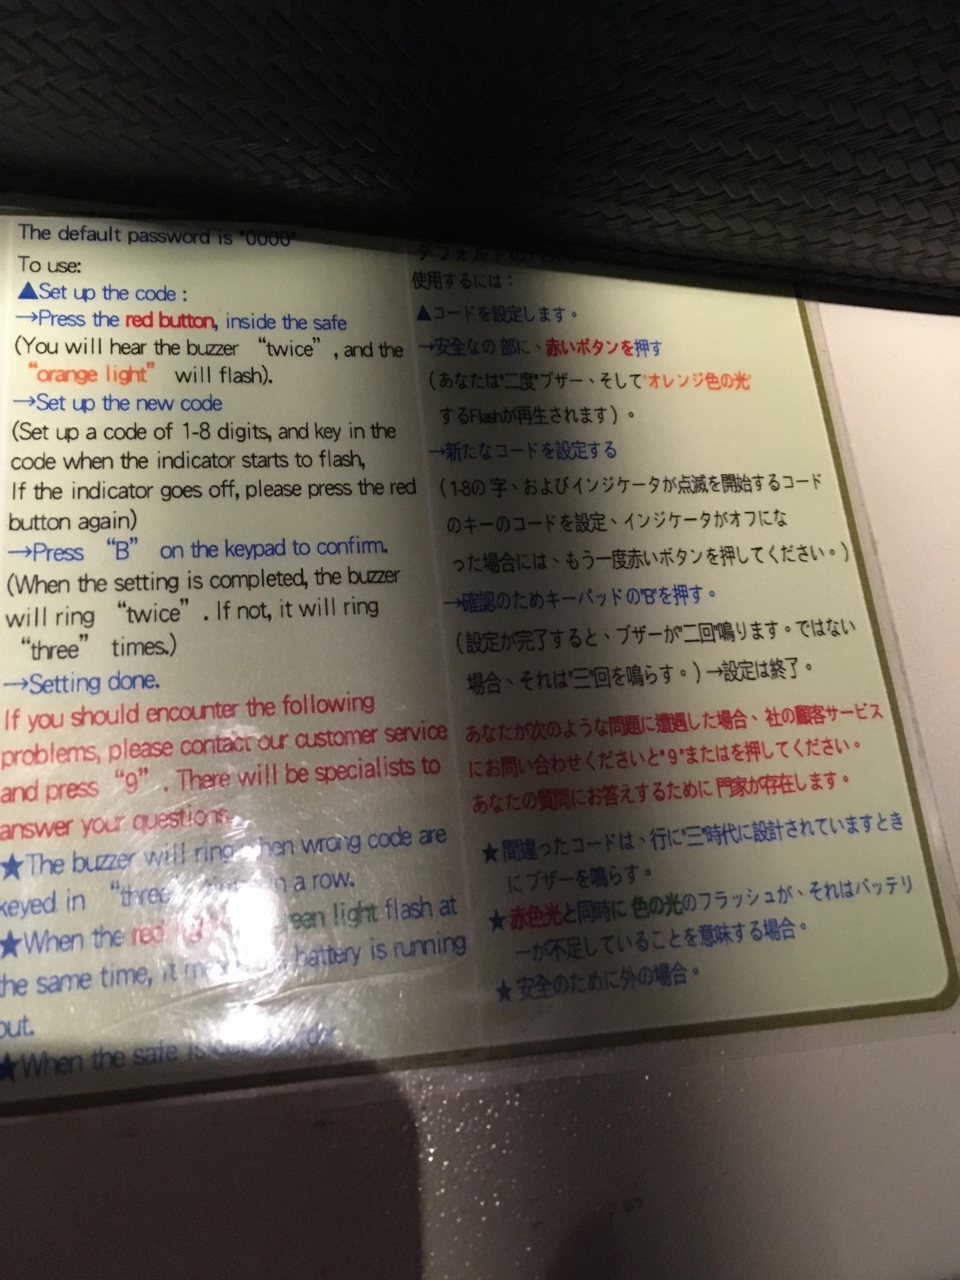 The default password is "0000"
To use:
▲Set up the code :
→Press the red button, inside the safe
(You will hear the buzzer “twice” , and the
“orange light” will flash).
→Set up the new code
(Set up a code of 1-8 digits, and key in the
code when the indicator starts to flash,
If the indicator goes off, please press the red
button again)
→Press “B” on the keypad to confirm.
(When the setting is completed, the buzzer
will ring “twice” . If not, it will ring
“three” times.)
→Setting done.
If you should encounter the following
problems, please contact our customer service
and press “9” . There will be specialists to
answer your questions.
★The buzzer will ring when wrong code are
keyed in “three” in a row.
★When the red green light flash at
the same time, it battery is running
out.
★When the safe is
使用するには：
▲コードを設定します。
→安全なの 部に、赤いボタンを押す
（あなたは"二度"ブザー、そして"オレンジ色の光"
するFlashが再生されます）。
→新たなコードを設定する
（1-8の 字、およびインジケータが点滅を開始するコード
のキーのコードを設定、インジケータがオフにな
った場合には、もう一度赤いボタンを押してください。）
→確認のためキーパッドの"B"を押す。
（設定が完了すると、ブザーが"二回"鳴ります。ではない
場合、それは"三"回を鳴らす。）→設定は終了。
あなたが次のような問題に遭遇した場合、 社の顧客サービス
にお問い合わせくださいと"9"またはを押してください。
あなたの質問にお答えするために 門家が存在します。
★間違ったコードは、行に"三"時代に設計されていますとき
にブザーを鳴らす。
★赤色光と同時に 色の光のフラッシュが、それはバッテリ
ーが不足していることを意味する場合。
★安全のために外の場合。